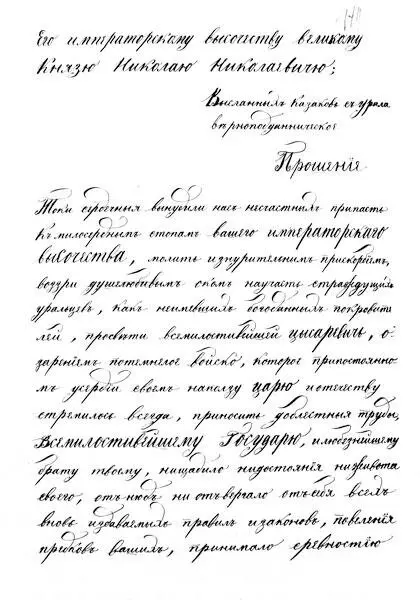 Его императорскому высочеству великому
Князю Николаю Николаевичю;
Высланныхъ Казаковъ съ урала
вѣрноподданническое
Прошенiе
Токи сердечныя вынудили насъ несчастныхъ припасть
къ милосерднымъ стопамъ вашего императорскаго
высочества, молить изнурительнымъ прискорбiемъ,
воззри душелюбивымъ окомъ на участь страждущихъ
уральцевъ, какъ неимевшихъ богоданныхъ покровите
лей, просвѣти всемилостивѣйшей цысаревичь, о-
зарѣнiемъ потемнелое войско, которое припостоянно-
мъ усердiи своемъ напользу царю иотечеству
стремилось всегда, приносить доблестныя труды,
Всемилостивѣйшему Государю, илюбезнѣйшему
брату твоему, нищадило нидостоянiя ниживота
своего, отънюдъ ни отъвергало отъсебя всехъ
вновь издаваемыхъ правилъ изаконовъ, повеленiя
предковъ вашихъ, принимало сревностiю